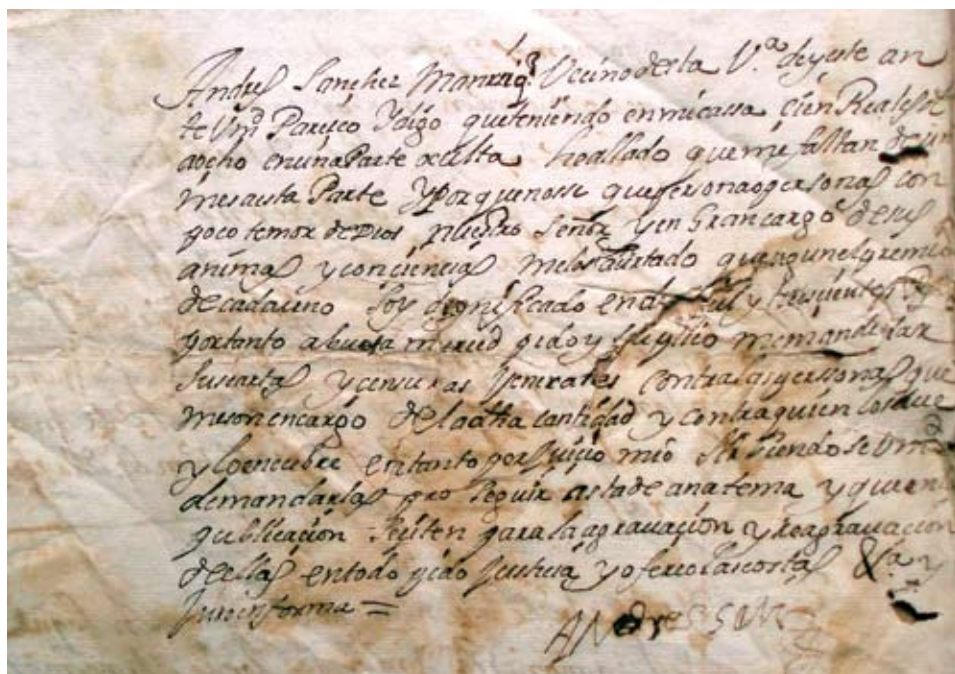 Andres Sanchez Manrriq. Vecino desta V.ª de yeste an
te Vmd Paresco Y digo que teniendo en mi cassa cien Reales de
aocho en una Parte oculta he allado que me faltan de un
mes a esta Parte Y porque no sse que persona o personas con
poco temor de Dios nuestro Señor y en Gran cargo de sus
animas y conciencias me los a urtado que segun el gremio
de cada uno soy dignificado en mil y
por tanto a buesa merced pido y suplico me mande dar
sus cartas y censuras Jenerales contra las perssonas que
me son en cargo de la dha cantidad y contra quien lo save
y lo encubre en tanto por juicio mio Sirbiendose Vmd
de mandarlas pro seguir asta de anatema y que en la
publicacion para la agrauacion y reagrauacion
de ellas en todo pido Justicia y ofresco las costas &ta y
Juro en forma =
ANdres